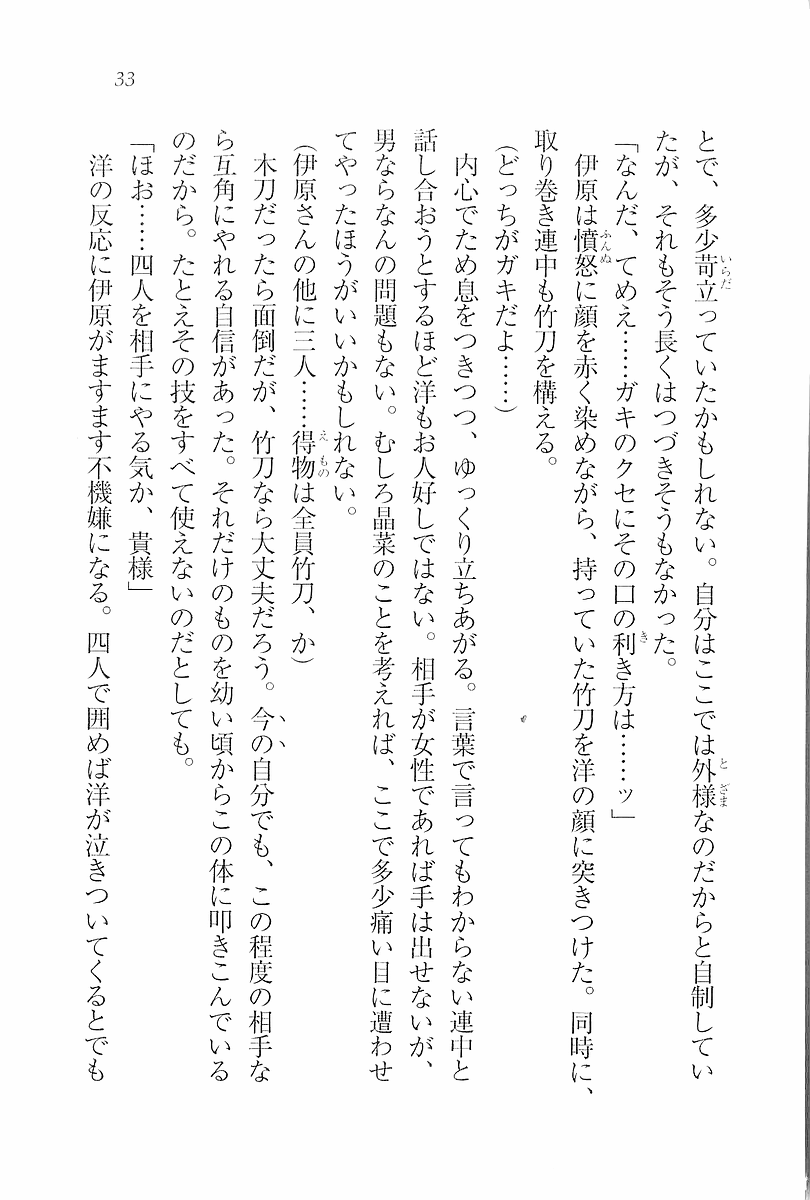 33
とで、多少苛立っていたかもしれない。自分はここでは外様なのだからと自制してい
たが、それもそう長くはつづきそうもなかった。
「なんだ、てめえ……ガキのクセにその口の利き方は……ッ」
伊原は憤怒に顔を赤く染めながら、持っていた竹刀を洋の顔に突きつけた。同時に、
取り巻き連中も竹刀を構える。
（どっちがガキだよ……）
内心でため息をつきつつ、ゆっくり立ちあがる。言葉で言ってもわからない連中と
話し合おうとするほど洋もお人好しではない。相手が女性であれば手は出せないが、
男ならなんの問題もない。むしろ晶菜のことを考えれば、ここで多少痛い目に遭わせ
てやったほうがいいかもしれない。
（伊原さんの他に三人……得物は全員竹刀、か）
木刀だったら面倒だが、竹刀なら大丈夫だろう。今の自分でも、この程度の相手な
ら互角にやれる自信があった。それだけのものを幼い頃からこの体に叩きこんでいる
のだから。たとえその技をすべて使えないのだとしても。
「ほお……四人を相手にやる気か、貴様」
洋の反応に伊原がますます不機嫌になる。四人で囲めば洋が泣きついてくるとでも